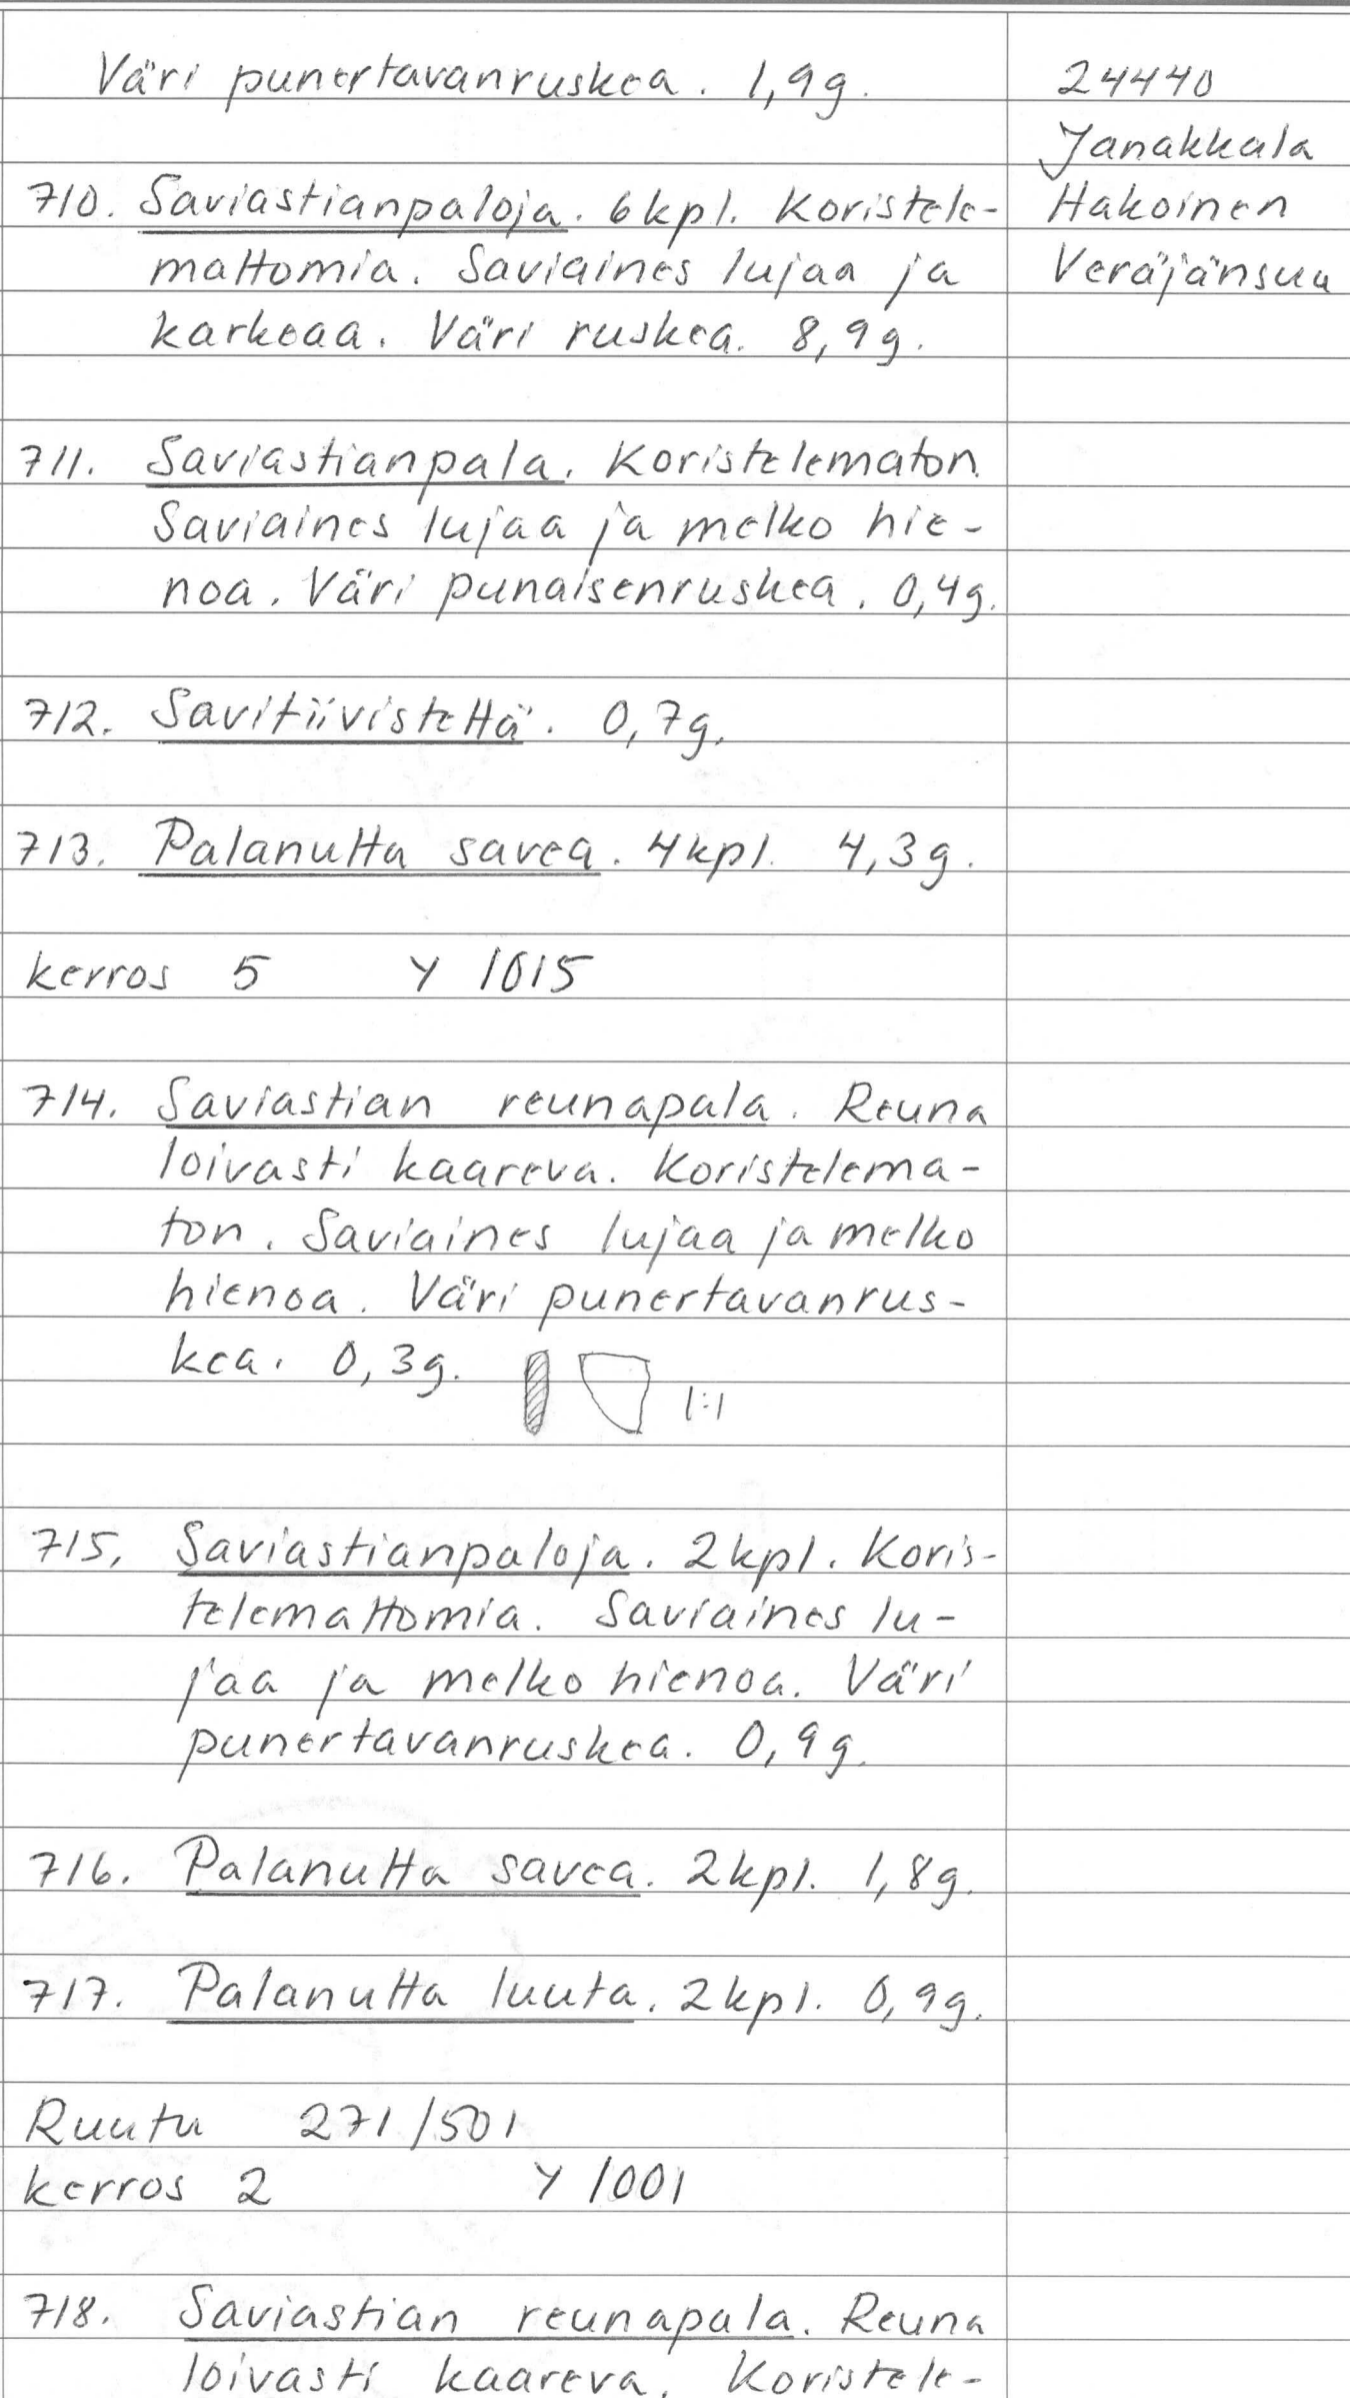 Väri punertavanruskea. 1,9g.
24440
Janakkala
Hakoinen
Veräjänsuu
710. Saviastianpaloja. 6kpl. Koristele-
mattomia. Saviaines lujaa ja
karkeaa. Väri ruskea. 8,9g.
711. Saviastianpala. Koristelematon.
Saviaines lujaa ja melko hie-
noa. Väri punaisenruskea. 0,4g.
712. Savitiivistettä. 0,7g.
713. Palanutta savea. 4kpl. 4,3g.
kerros 5 Y 1015
714. Saviastian reunapala. Reuna
loivasti kaareva. Koristelema-
ton. Saviaines lujaa ja melko
hienoa. Väri punertavanrus-
kea. 0,3g.
1:1
715. Saviastianpaloja. 2kpl. Koris-
telemattomia. Saviaines lu-
jaa ja melko hienoa. Väri
punertavanruskea. 0,9g.
716. Palanutta savea. 2kpl. 1,8g.
717. Palanutta luuta. 2kpl. 0,9g.
Ruutu 271/501
kerros 2 Y 1001
718. Saviastian reunapala. Reuna
loivasti kaareva. Koristele-